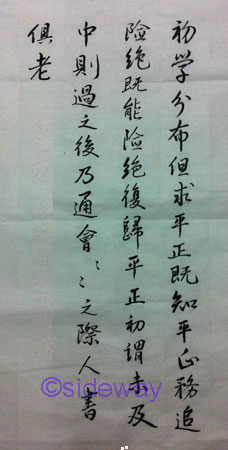 初学分布但求平正既知平正務追
险绝既能险绝復歸平正初謂未及
中則過之後乃通會〻〻之際人書
俱老
©sideway